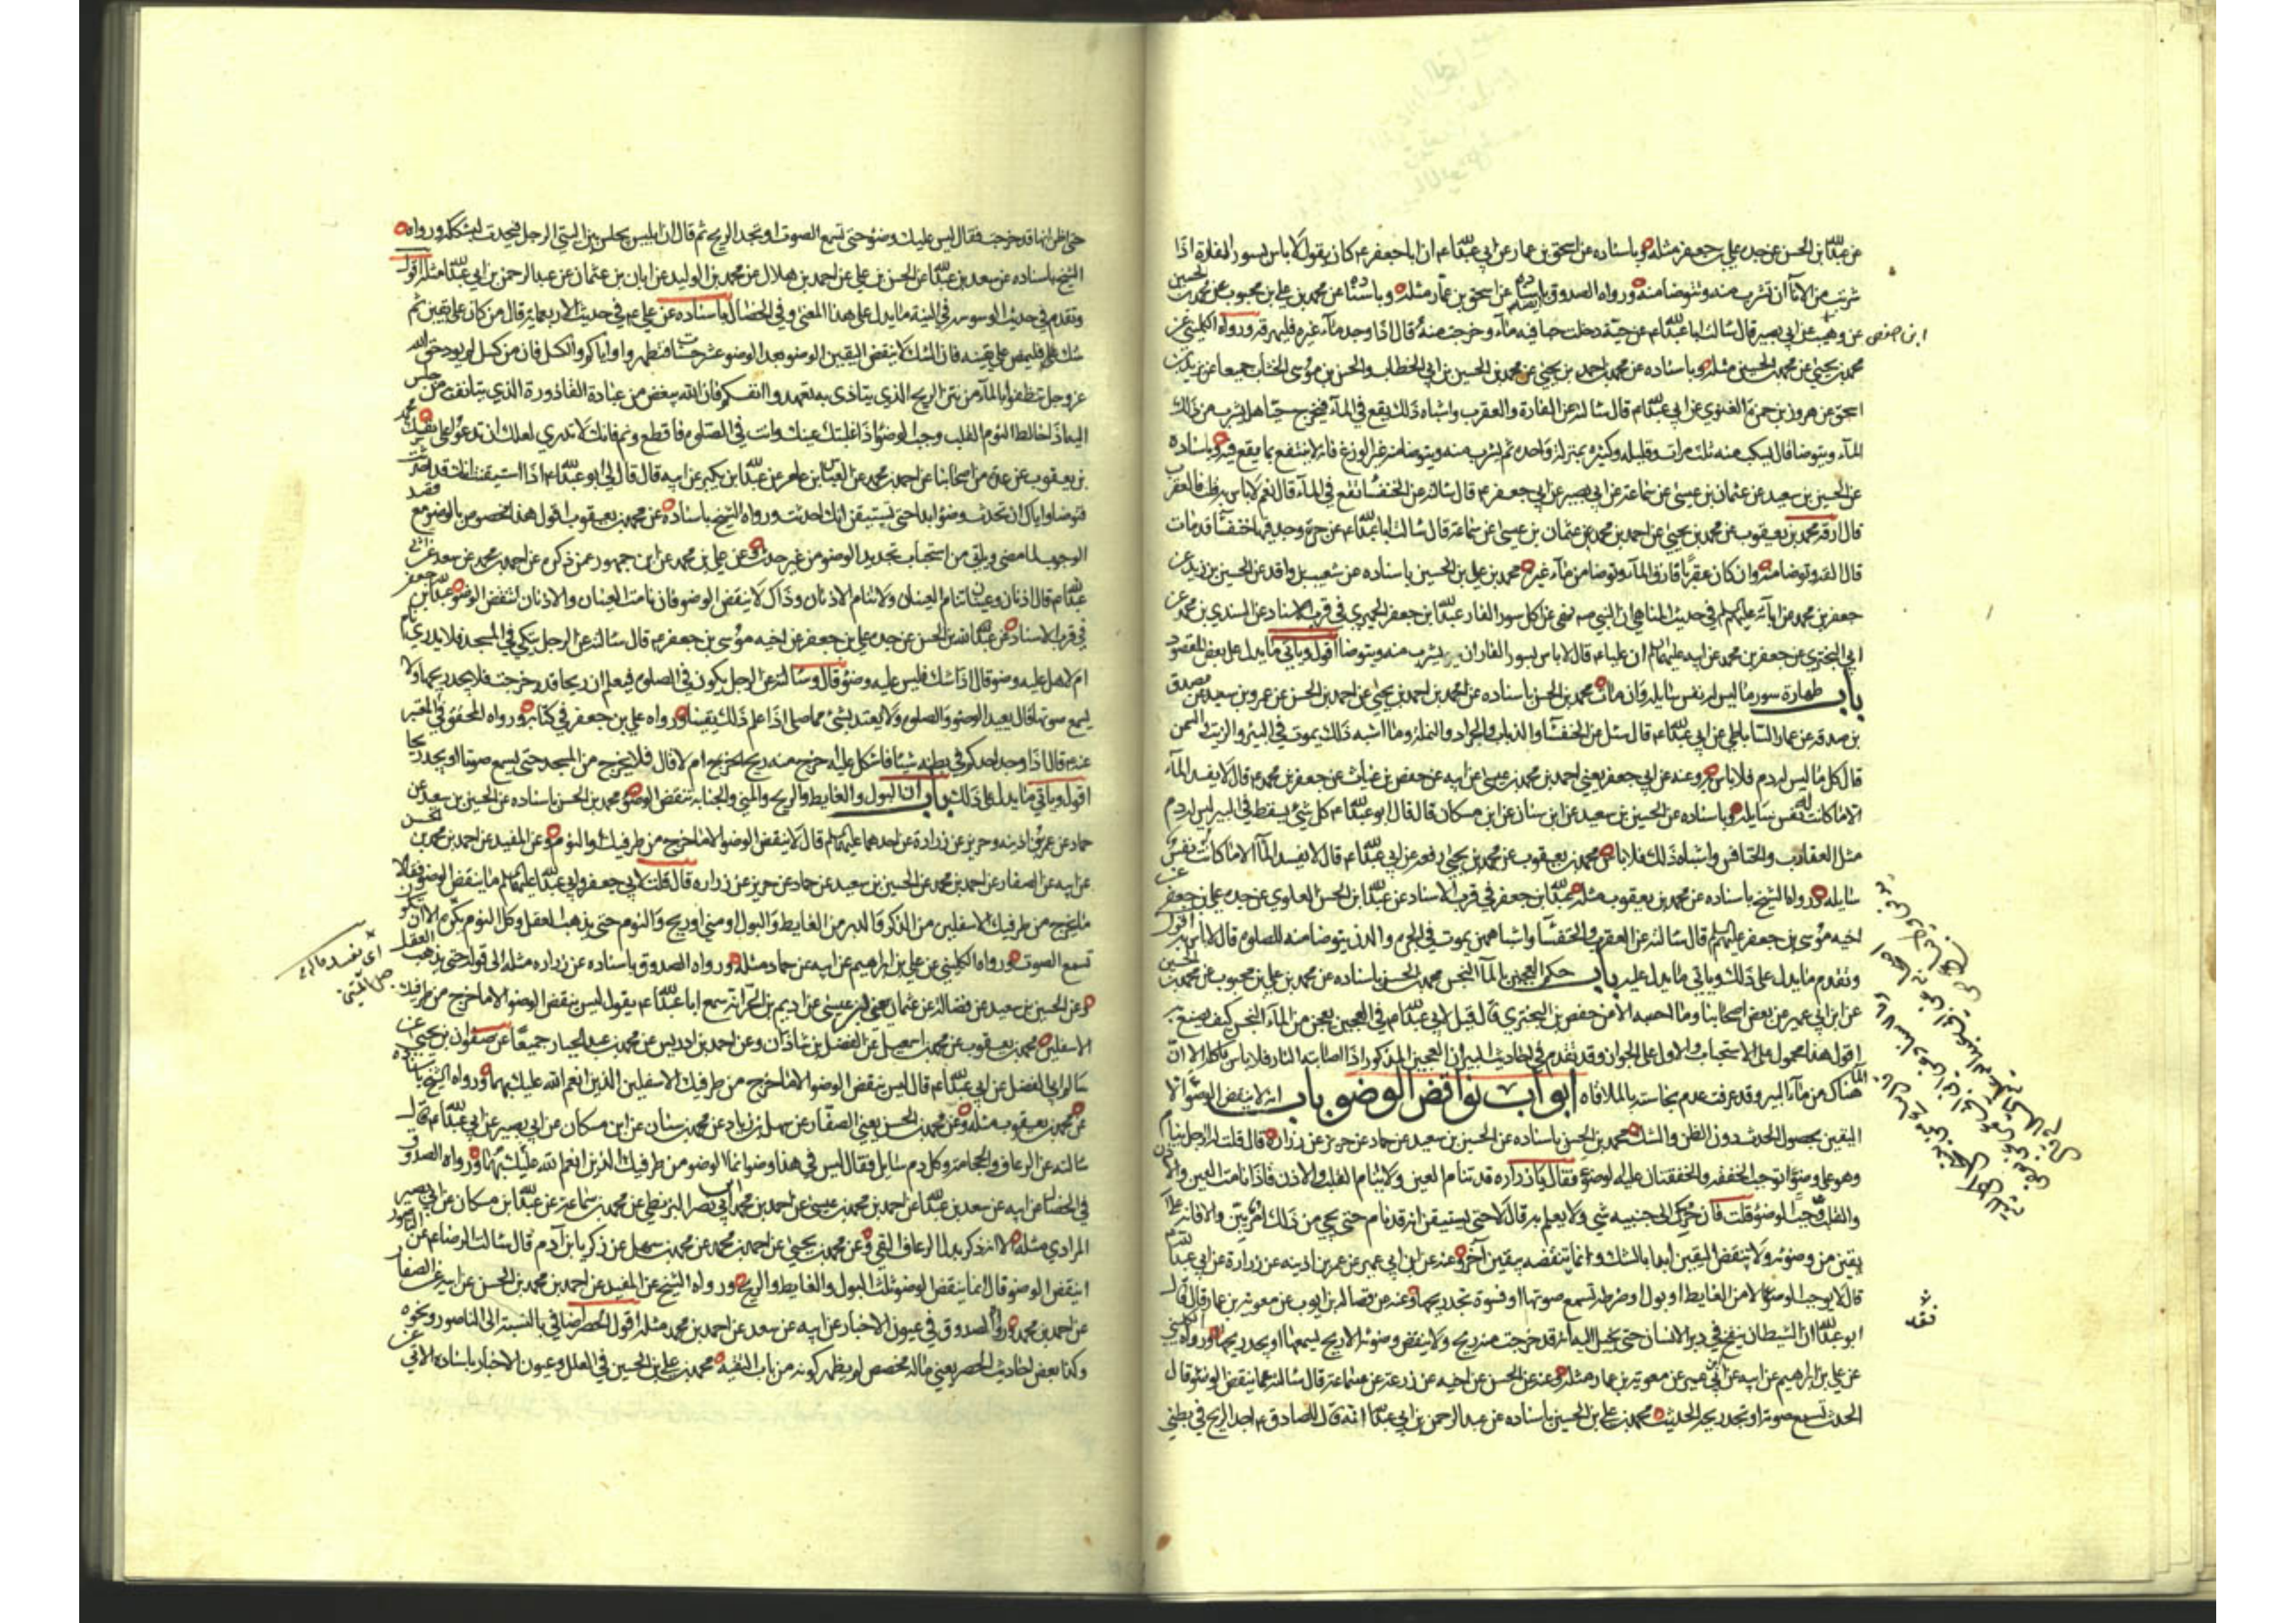 عن عبد الله بن الحسن عن جده علي بن جعفر مثله وباسناده عن اسحق بن عمار عن ابي عبد الله ع ان ابا جعفر ع كان يقول لا باس بسور الفارة اذا
شربت من الاناء ان تشرب منه وتتوضا منه ورواه الصدوق باسناده عن اسحق بن عمار مثله وباسناده عن محمد بن علي بن محبوب عن محمد بن الحسين
عن وهيب عن ابي بصير قال سالت ابا عبد الله ع عن حية دخلت حبا فيه ماء وخرجت منه قال اذا وجد ماء غيره فليهرقه ورواه الكليني عن
ابن حفص
محمد بن يحيى عن محمد بن الحسين مثله وباسناده عن محمد بن احمد بن يحيى عن محمد بن الحسين بن ابي الخطاب والحسن بن موسى الخشاب جميعا عن يزيد بن
اسحق عن هرون بن حمزة الغنوي عن ابي عبد الله ع قال سالته عن الفارة والعقرب واشباه ذلك يقع في الماء فيخرج حيا هل يشرب من ذلك
الماء ويتوضا قال يسكب منه ثلث مرات وقليله وكثيره بمنزلة واحدة ثم يشرب منه ويتوضا منه غير الوزغ فانه لا ينتفع بما يقع فيه وباسناده
عن الحسين بن سعيد عن عثمان بن عيسى عن سماعة عن ابي بصير عن ابي جعفر ع قال سالته عن الخنفساء تقع في الماء قال نعم لا باس به قلت فالعقرب
قال ارقه محمد بن يعقوب عن محمد بن يحيى عن احمد بن محمد عن عثمان بن عيسى عن سماعة قال سالت ابا عبد الله ع عن جرة وجد فيها خنفساء قد مات
قال القه وتوضا منه وان كان عقربا فارق الماء وتوضا من ماء غيره محمد بن علي بن الحسين باسناده عن شعيب بن واقد عن الحسين بن زيد عن
جعفر بن محمد عن ابائه عليهم السلام في حديث المناهي ان النبي ص نهى عن اكل سور الفار عبد الله بن جعفر الحميري في قرب الاسناد عن السندي بن محمد عن
ابي البختري عن جعفر بن محمد عن ابيه عليهما السلام ان عليا ع قال لا باس بسور الفار ان يشرب منه ويتوضا اقول وياتي ما يدل على بعض المقصود
باب طهارة سور ما ليس له نفس سايلة وان مات محمد بن الحسن باسناده عن محمد بن احمد بن يحيى عن احمد بن الحسن عن عمرو بن سعيد عن مصدق
بن صدقة عن عمار الساباطي عن ابي عبد الله ع قال سئل عن الخنفساء والذباب والجراد والنملة وما اشبه ذلك يموت في البئر والزيت والسمن
قال كل ما ليس له دم فلا باس به وعنه عن ابي جعفر يعني احمد بن محمد بن عيسى عن ابيه عن حفص بن غياث عن جعفر بن محمد ع قال لا يفسد الماء
الا ما كانت له نفس سايلة وباسناده عن الحسين بن سعيد عن ابن سنان عن ابن مسكان قال قال ابو عبد الله ع كل شيء يسقط في البير ليس له دم
مثل العقارب والخنافس واشباه ذلك فلا باس محمد بن يعقوب عن محمد بن يحيى رفعه عن ابي عبد الله ع قال لا يفسد الماء الا ما كانت له نفس
سايلة ورواه الشيخ باسناده عن محمد بن يعقوب مثله عبد الله بن جعفر في قرب الاسناد عن عبد الله بن الحسن العلوي عن جده علي بن جعفر عن
اخيه موسى بن جعفر عليهم السلام قال سالته عن العقرب والخنفساء واشباههن يموت في الجرة والدن يتوضا منه للصلوة قال لا باس به اقول
وتقدم ما يدل على ذلك وياتي ما يدل عليه باب حكم العجين بالماء النجس محمد بن الحسن باسناده عن محمد بن علي بن محبوب عن محمد بن الحسين
عن ابن ابي عمير عن بعض اصحابنا وما احسبه الا من حفص بن البختري قال قيل لابي عبد الله ع في العجين يعجن من الماء النجس كيف يصنع به
اقول هذا محمول على الاستحباب والاول على الجواز وقد تقدم في احاديث البير ان العجين المذكور اذا اصابته النار فلا باس باكله الا ان
هناك من ماء البير وقد عرفت عدم نجاسته بالملاقاة ابواب نواقض الوضو باب انه لا ينقض الوضو الا
اليقين بحصول الحدث دون الظن والشك محمد بن الحسن باسناده عن الحسين بن سعيد عن حماد عن حريز عن زرارة قال قلت له الرجل ينام
وهو على وضوء اتوجب الخفقة والخفقتان عليه الوضوء فقال يا زرارة قد تنام العين ولا ينام القلب والاذن فاذا نامت العين والاذن
والقلب وجب الوضوء قلت فان حرك الى جنبه شي ولا يعلم به قال لا حتى يستيقن انه قد نام حتى يجي من ذلك امر بين والا فانه على
يقين من وضوئه ولا تنقض اليقين ابدا بالشك وانما تنقضه بيقين اخر وعنه عن ابن ابي عمير عن عمر بن اذينة عن زرارة عن ابي عبد الله ع
قال لا يوجب الوضوء الا من الغايط او بول او ضرطة تسمع صوتها او فسوة تجد ريحها وعنه عن فضالة بن ايوب عن معوية بن عمار قال قال
ابو عبد الله ع ان الشيطان ينفخ في دبر الانسان حتى يخيل اليه انه قد خرجت منه ريح ولا ينقض وضوئه الا ريح يسمعها او يجد ريحها ورواه الكليني
عن علي بن ابراهيم عن ابيه عن ابن ابي عمير عن معوية بن عمار مثله وعنه عن الحسن عن اخيه عن زرعة عن سماعة قال سالته عما ينقض الوضوء قال
الحدث تسمع صوته او تجد ريحه الحديث محمد بن علي بن الحسين باسناده عن عبد الرحمن بن ابي عبد الله انه قال للصادق ع اجد الريح في بطني
حتى اظن انها قد خرجت فقال ليس عليك وضوء حتى تسمع الصوت او تجد الريح ثم قال ان ابليس يجلس بين اليتي الرجل فيحدث ليشككه ورواه
الشيخ باسناده عن سعد بن عبد الله عن الحسن بن علي عن احمد بن هلال عن محمد بن الوليد عن ابان بن عثمان عن عبد الرحمن بن ابي عبد الله مثله اقول
وتقدم في حديث الوسوسة في النية ما يدل على هذا المعنى وفي الخصال باسناده عن علي ع في حديث الاربعماية قال من كان على يقين ثم
شك فليمض على يقينه فان الشك لا ينقض اليقين الوضو بعد الوضو عشر حسنات فتطهروا واياكم والكسل فان من كسل لم يود حق الله
عز وجل تنظفوا بالماء من نتن الريح الذي يتاذى به تعهدوا انفسكم فان الله يبغض من عباده القاذورة الذي يتانف من جلس
اليه اذا خالط النوم القلب وجب الوضو اذا غلبتك عينك وانت في الصلوة فاقطع ونم فانك لا تدري لعلك ان تدعو على نفسك محمد
بن يعقوب عن عدة من اصحابنا عن احمد بن محمد عن العباس بن عامر عن عبد الله بن بكير عن ابيه قال قال لي ابو عبد الله ع اذا استيقنت انك قد احدثت
فتوضا واياك ان تحدث وضوءا ابدا حتى تستيقن انك احدثت ورواه الشيخ باسناده عن محمد بن يعقوب اقول هذا مخصوص بالوضو مع قصد
الوجوب لما مضى وياتي من استحباب تجديد الوضو من غير حدث وعن علي بن محمد عن ابن جمهور عمن ذكره عن احمد بن محمد عن سعد عن ابي
عبد الله ع قال اذنان وعينان تنام العينان ولا تنام الاذنان وذاك لا ينقض الوضو فاذا نامت العينان والاذنان انتقض الوضو عبد الله بن جعفر
في قرب الاسناد عن عبد الله بن الحسن عن جده علي بن جعفر عن اخيه موسى بن جعفر ع قال سالته عن الرجل يتكي في المسجد فلا يدري نام
ام لا هل عليه وضو قال اذا شك فليس عليه وضوء قال وسالته عن الرجل يكون في الصلوة فيعلم ان ريحا قد خرجت فلا يجد ريحها ولا
يسمع صوتها قال يعيد الوضو والصلوة ولا يعتد بشيء مما صلى اذا علم ذلك يقينا ورواه علي بن جعفر في كتابه ورواه المحقق في المعتبر
عنه ع قال اذا وجد احدكم في بطنه شيئا فاشكل عليه اخرج منه ريح ام لا قال فلا يخرج من المسجد حتى يسمع صوتا او يجد ريحا
اقول وياتي ما يدل على ذلك باب ان البول والغايط والريح والمني والجنابة تنقض الوضو محمد بن الحسن باسناده عن الحسين بن سعيد عن
حماد عن عمر بن اذينة وحريز عن زرارة عن احدهما عليهما السلام قال لا ينقض الوضو الا ما خرج من طرفيك او النوم وعن المفيد عن احمد بن محمد بن الحسن
عن ابيه عن الصفار عن احمد بن محمد عن الحسين بن سعيد عن حماد عن حريز عن زرارة قال قلت لابي جعفر وابي عبد الله عليهما السلام ما ينقض الوضو فقالا
ما يخرج من طرفيك الاسفلين من الذكر والدبر من الغايط والبول او مني او ريح والنوم حتى يذهب العقل وكل النوم يكره الا ان تكون
تسمع الصوت ورواه الكليني عن علي بن ابراهيم عن ابيه عن حماد مثله ورواه الصدوق باسناده عن زرارة مثله الى قوله حتى يذهب العقل
وعن الحسين بن سعيد عن فضالة عن عثمان يعني ابن عيسى عن اديم بن الحر انه سمع ابا عبد الله ع يقول ليس ينقض الوضو الا ما خرج من طرفيك
الاسفلين محمد بن يعقوب عن محمد بن اسمعيل عن الفضل بن شاذان وعن احمد بن ادريس عن محمد بن عبد الجبار جميعا عن صفوان بن يحيى عن
سالم ابي الفضل عن ابي عبد الله ع قال ليس ينقض الوضو الا ما خرج من طرفيك الاسفلين الذين انعم الله عليك بهما ورواه الشيخ باسناده
عن محمد بن يعقوب مثله وعن محمد بن الحسن يعني الصفار عن سهل بن زياد عن محمد بن سنان عن ابن مسكان عن ابي بصير عن ابي عبد الله ع قال
سالته عن الرعاف والحجامة وكل دم سايل فقال ليس في هذا وضو انما الوضو من طرفيك الذين انعم الله عليك بهما ورواه الصدوق
في الخصال عن ابيه عن سعد بن عبد الله عن احمد بن محمد بن عيسى عن احمد بن محمد بن ابي نصر البزنطي عن محمد بن سماعة عن عبد الله بن مسكان عن ابي بصير
المرادي مثله الا انه ذكر بدل الرعاف القي وعن محمد بن يحيى عن احمد بن محمد عن محمد بن سهل عن زكريا بن ادم قال سالت الرضا ع عن الناصور
اينقض الوضو قال انما ينقض الوضو ثلث البول والغايط والريح ورواه الشيخ عن المفيد عن احمد بن محمد بن الحسن عن ابيه عن الصفار
عن احمد بن محمد ورواه الصدوق في عيون الاخبار عن ابيه عن سعد عن احمد بن محمد مثله اقول الحصر اضافي بالنسبة الى الناصور ونحوه
وكذا بعض احاديث الحصر يعني ماله مخصص لو يظهر كونه من باب التقية محمد بن علي بن الحسين في العلل وعيون الاخبار باسناده الاتي